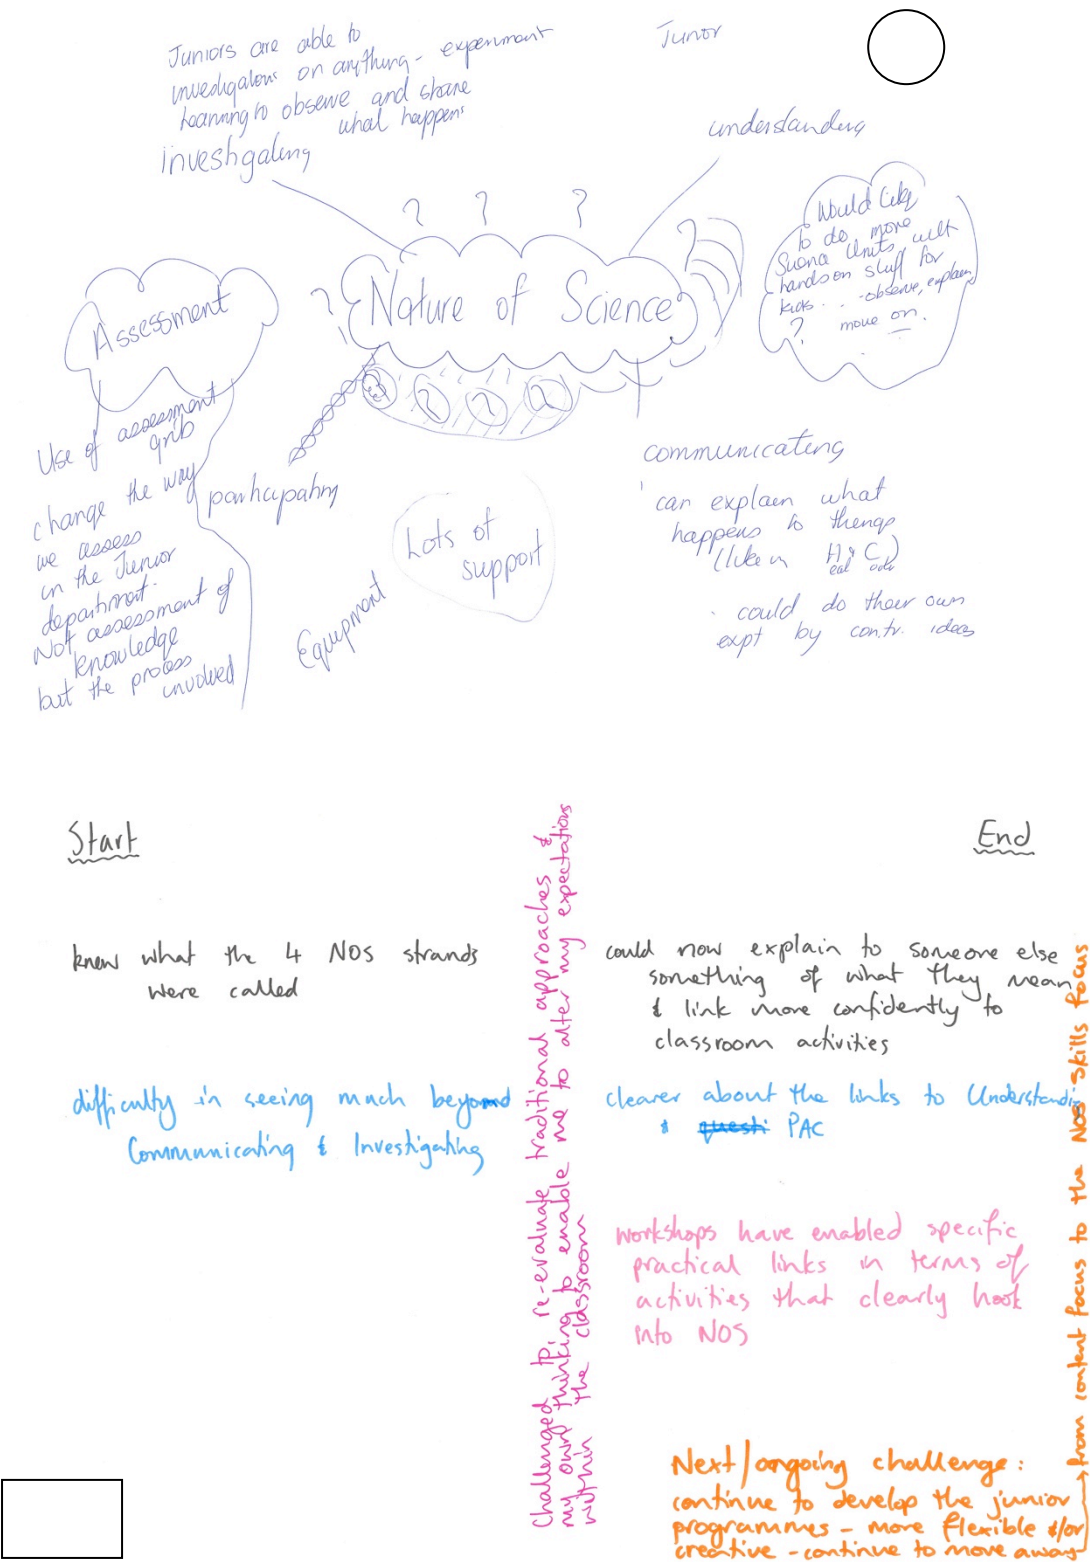 Juniors are able to
investigations on anything - experiment
learning to observe and share
what happens
investigating
Junior
understanding
? ? ?
Would like
to do more
Science Units with
hands on stuff for
kids... - observe, explain
? move on.
Nature of Science
?
?
Assessment
Use of assessment
grib
change the way
we assess
in the Junior
department.
Not assessment of
knowledge
but the process
involved
participating
Lots of
support
Equipment
communicating
can explain what
happens to things
(like in H & C)
eat
could do their own
expt by contr. ideas
Start
knew what the 4 NOS strands
were called
difficulty in seeing much beyond
Communicating & Investigating
Challenged to re-evaluate traditional approaches &
my own thinking to enable me to alter my expectations
within the classroom
End
could now explain to someone else
something of what they mean
& link more confidently to
classroom activities
clearer about the links to Understandin
& questi PAC
workshops have enabled specific
practical links in terms of
activities that clearly hook
into NOS
Next/ongoing challenge:
continue to develop the junior
programmes - more flexible &/or
creative - continue to move away
from content focus to the NOS skills focus